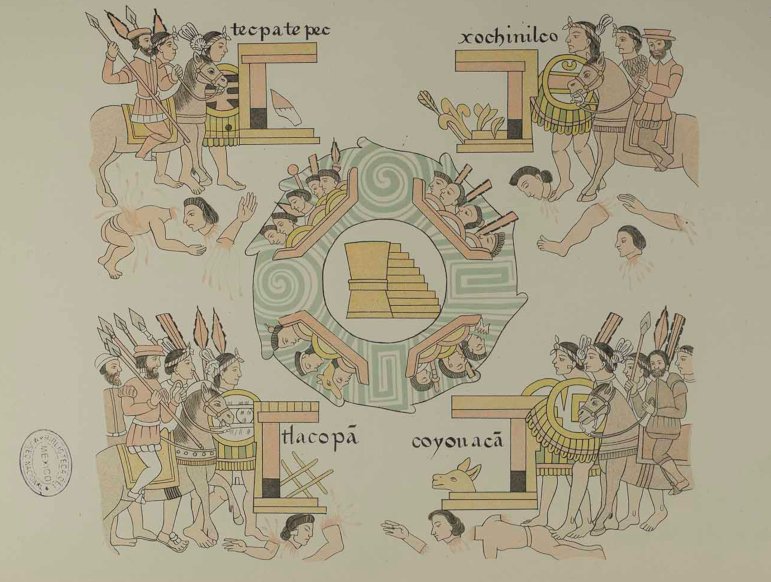 tecpatepec
xochinilco
tlacopã
coyouacã
MEXICO